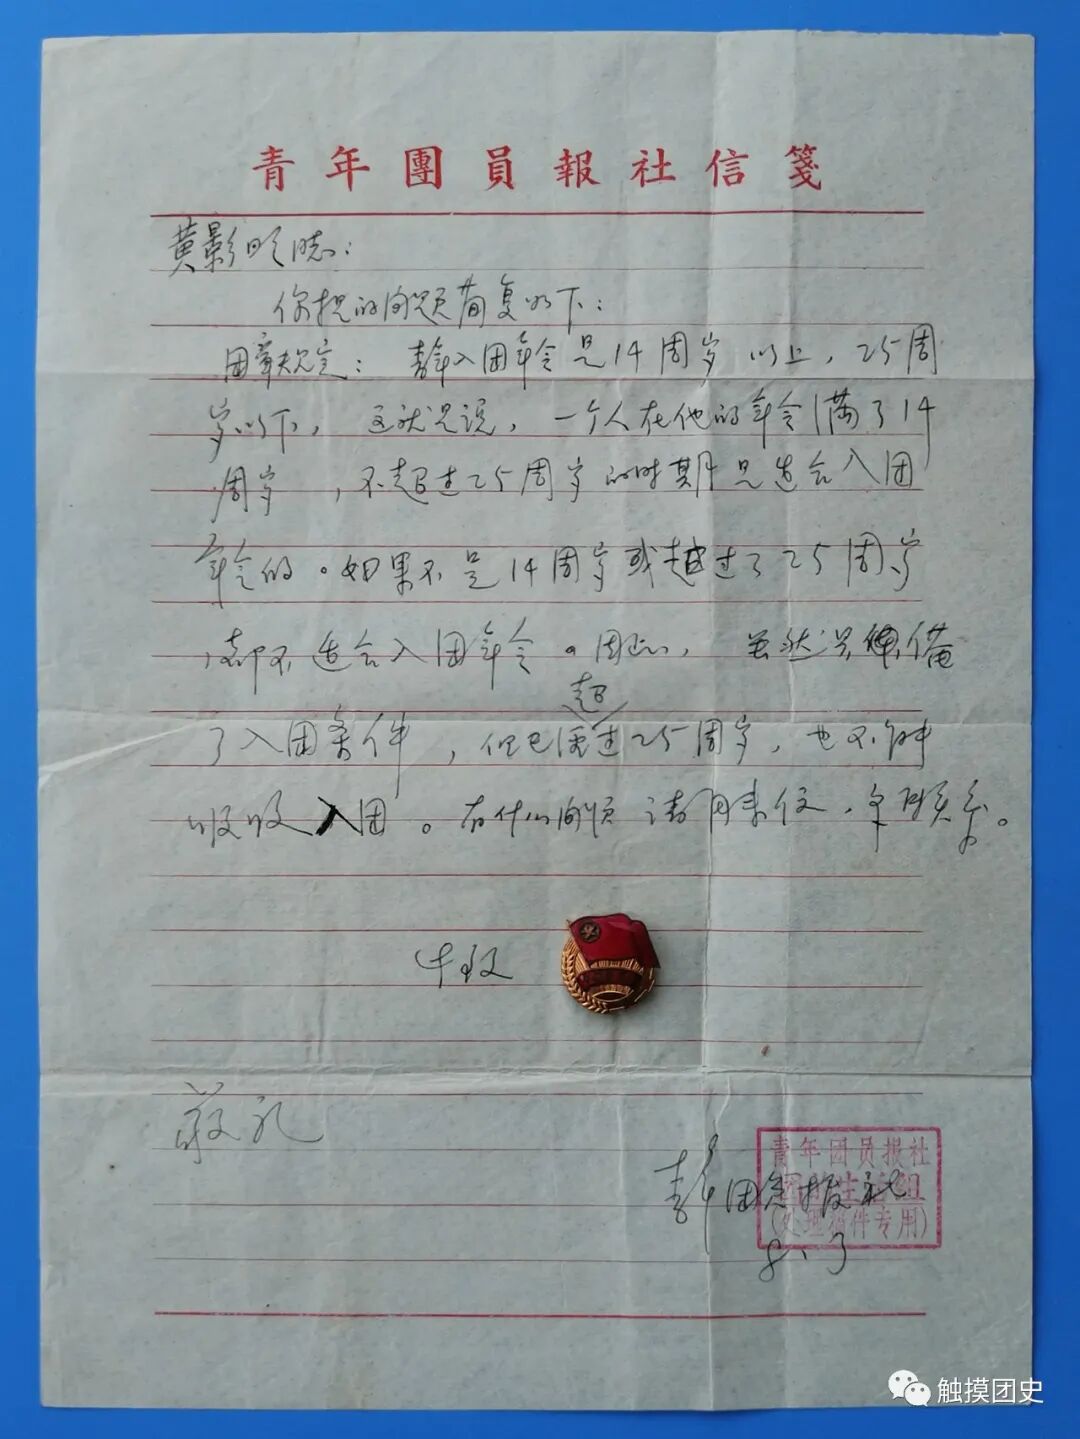 青年團員報社信箋
黄影明同志：
你提的问题简复如下：
团章规定：青年入团年令是14周岁以上，25周
岁以下，这就是说，一个人在他的年令满了14
周岁，不超过25周岁的时期是适合入团
年令的。如果不是14周岁或越过了25周岁
，都不适合入团年令。因此，虽然具备
了入团条件，但已超过25周岁，也不能
吸收入团。有什么问题请来信，联系。
此致
敬礼
青年团员报社
8、3
青年团员报社
(处理稿件专用)
触摸团史